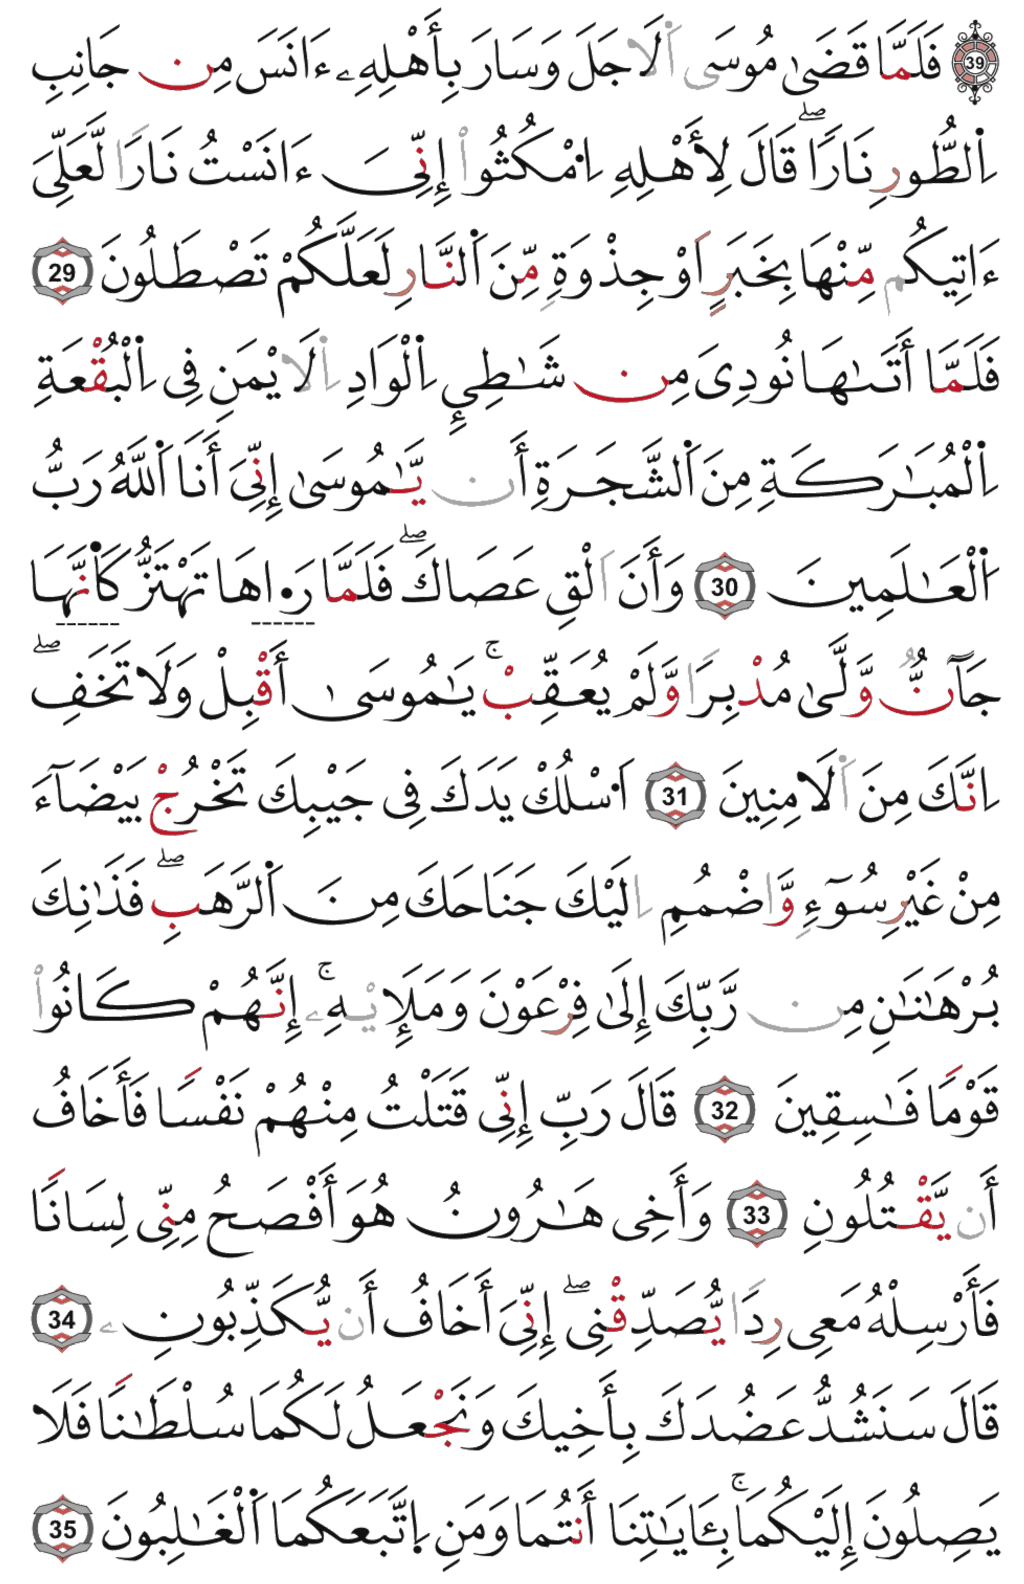 39 فَلَمَّا قَضَىٰ مُوسَى اَ۬لَاجَلَ وَسَارَ بِأَهْلِهِۦٓ ءَانَسَ مِن جَانِبِ
اِ۬لطُّورِ نَارٗاۖ قَالَ لِأَهْلِهِ اِ۟مْكُثُوٓاْ إِنِّيَ ءَانَسْتُ نَارٗا لَّعَلِّيَ
ءَاتِيكُم مِّنْهَا بِخَبَرٍ اَوْ جِذْوَةٖ مِّنَ اَ۬لنَّارِ لَعَلَّكُمْ تَصْطَلُونَ 29
فَلَمَّا أَتَىٰهَا نُودِيَ مِن شَٰطِےِٕ اِ۬لْوَادِ اِ۬لَايْمَنِ فِي اِ۬لْبُقْعَةِ
اِ۬لْمُبَٰرَكَةِ مِنَ اَ۬لشَّجَرَةِ أَن يَّٰمُوسَىٰ إِنِّيَ أَنَا اَ۬للَّهُ رَبُّ
اُ۬لْعَٰلَمِينَ 30 وَأَنَ اَلْقِ عَصَاكَۖ فَلَمَّا رَءٰاهَا تَهْتَزُّ كَأَنَّهَا
جَآنّٞ وَلَّىٰ مُدْبِرٗا وَلَمْ يُعَقِّبْۚ يَٰمُوسَىٰ أَقْبِلْ وَلَا تَخَفِۖ
اِنَّكَ مِنَ اَ۬لَامِنِينَ 31 اَ۟سْلُكْ يَدَكَ فِي جَيْبِكَ تَخْرُجْ بَيْضَآءَ
مِنْ غَيْرِ سُوٓءٖ وَاضْمُمِ اِلَيْكَ جَنَاحَكَ مِنَ اَ۬لرَّهَبِۖ فَذَٰنِكَ
بُرْهَٰنَٰنِ مِن رَّبِّكَ إِلَىٰ فِرْعَوْنَ وَمَلَإِيْهِۦٓۚ إِنَّهُمْ كَانُواْ
قَوْمٗا فَٰسِقِينَ 32 قَالَ رَبِّ إِنِّي قَتَلْتُ مِنْهُمْ نَفْسٗا فَأَخَافُ
أَن يَّقْتُلُونِ 33 وَأَخِي هَٰرُونُ هُوَ أَفْصَحُ مِنِّي لِسَانٗا
فَأَرْسِلْهُ مَعِي رِدٗا يُصَدِّقْنِيۖ إِنِّيَ أَخَافُ أَن يُّكَذِّبُونِۦ 34
قَالَ سَنَشُدُّ عَضُدَكَ بِأَخِيكَ وَنَجْعَلُ لَكُمَا سُلْطَٰنٗا فَلَا
يَصِلُونَ إِلَيْكُمَاۚ بِـَٔايَٰتِنَا أَنتُمَا وَمَنِ اِ۪تَّبَعَكُمَا اَ۬لْغَٰلِبُونَ 35